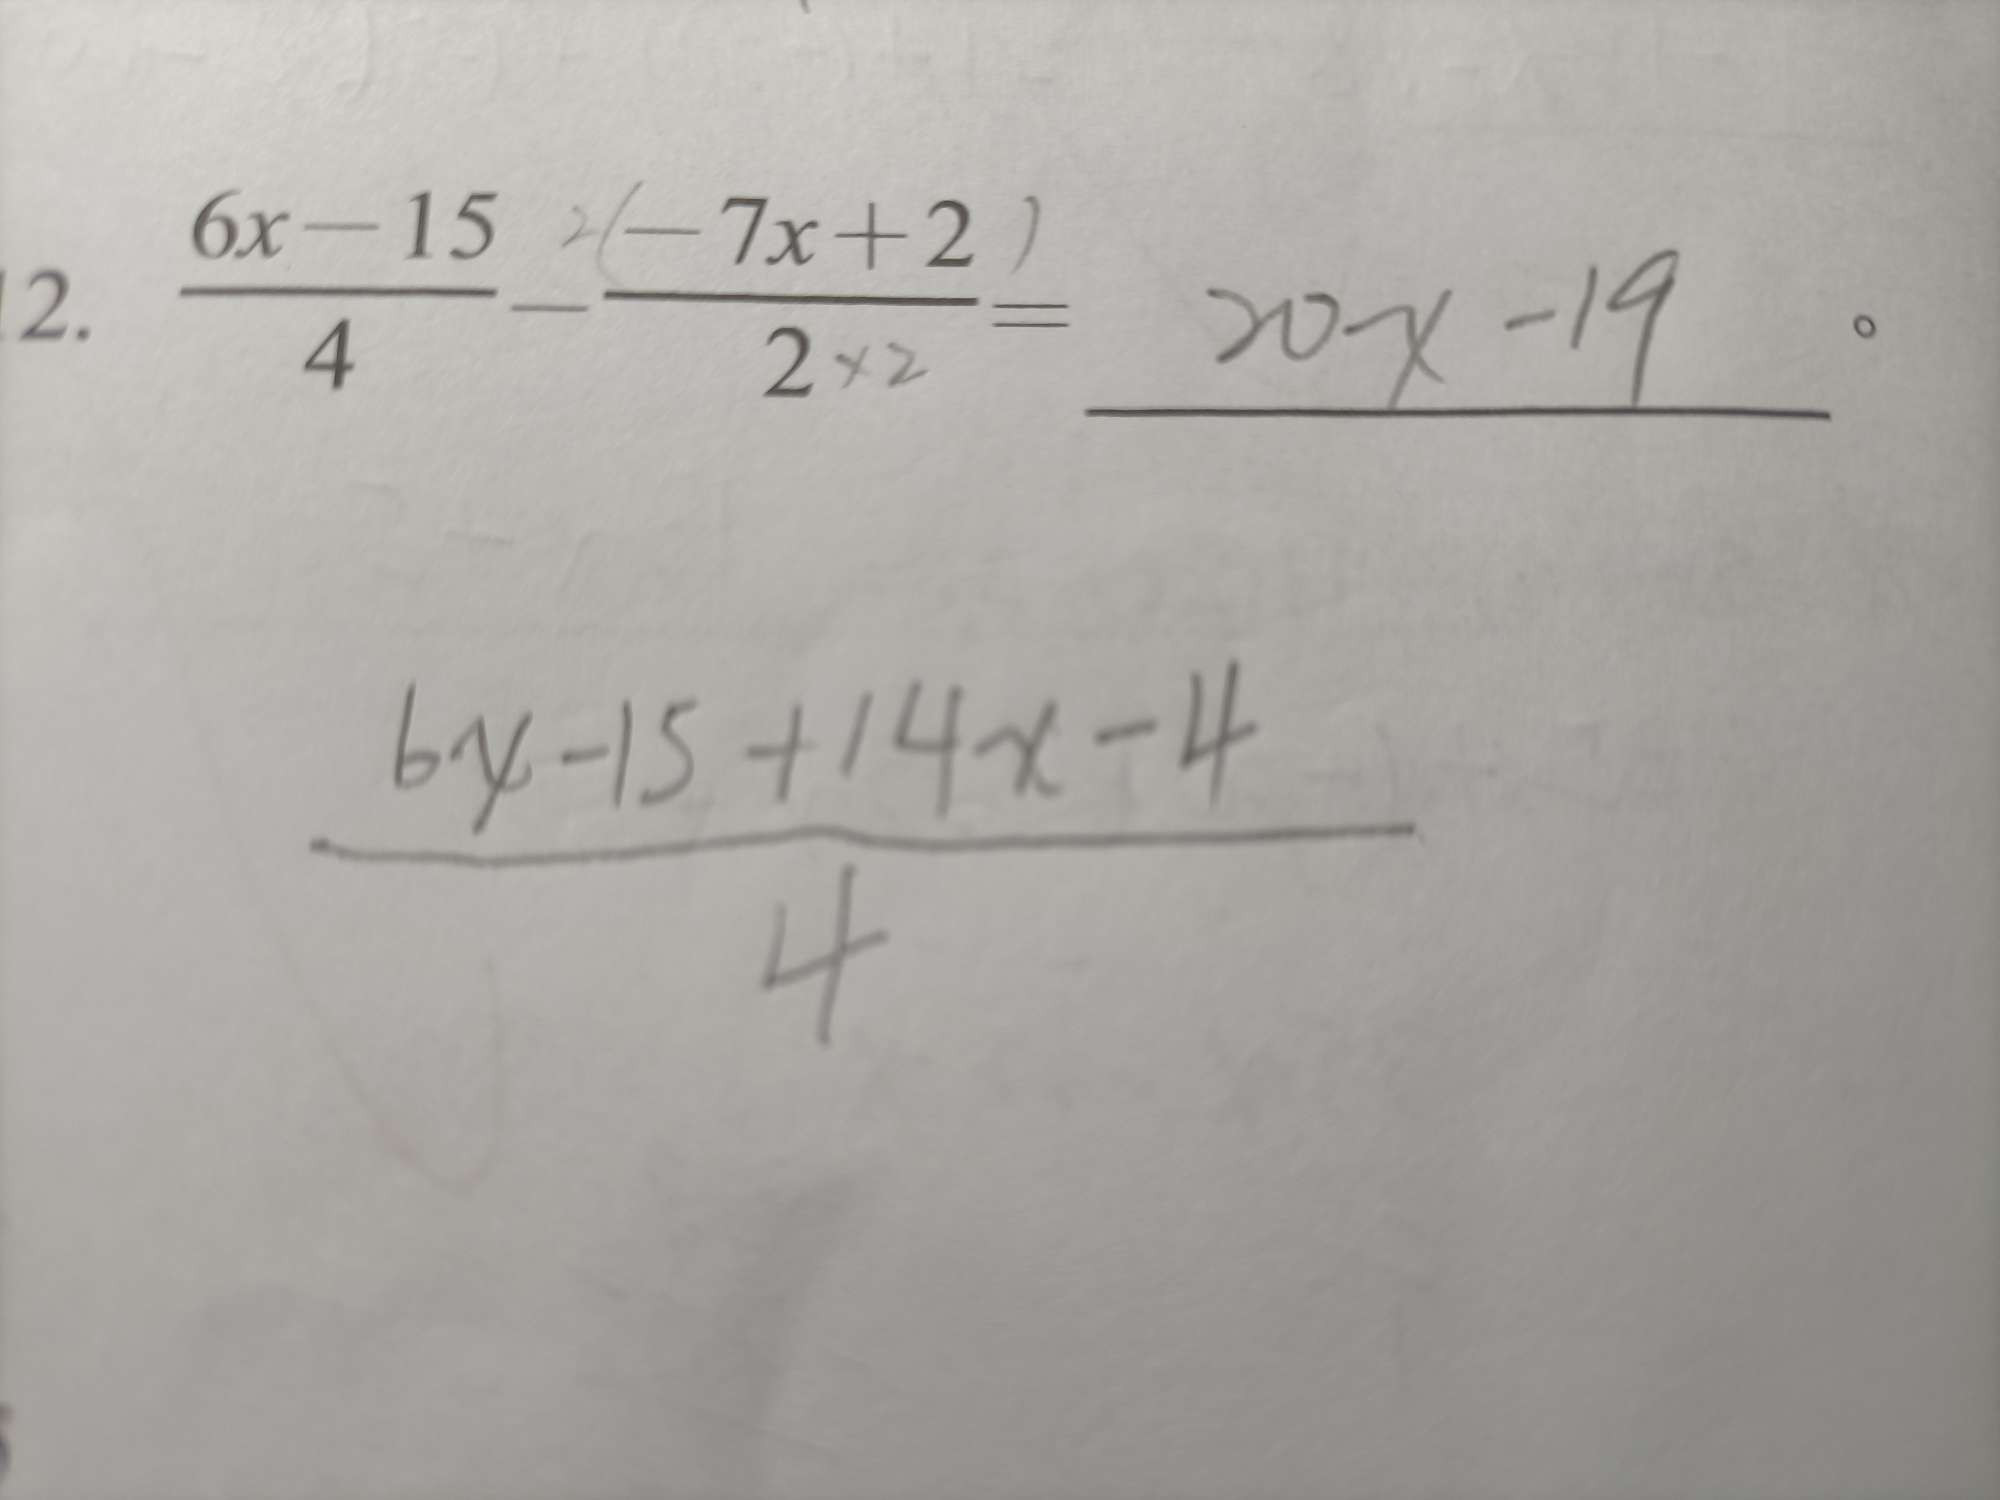 12. \frac{6x-15}{4} - \frac{2(-7x+2)}{2×2} = 20x-19 。
\frac{6x-15+14x-4}{4}